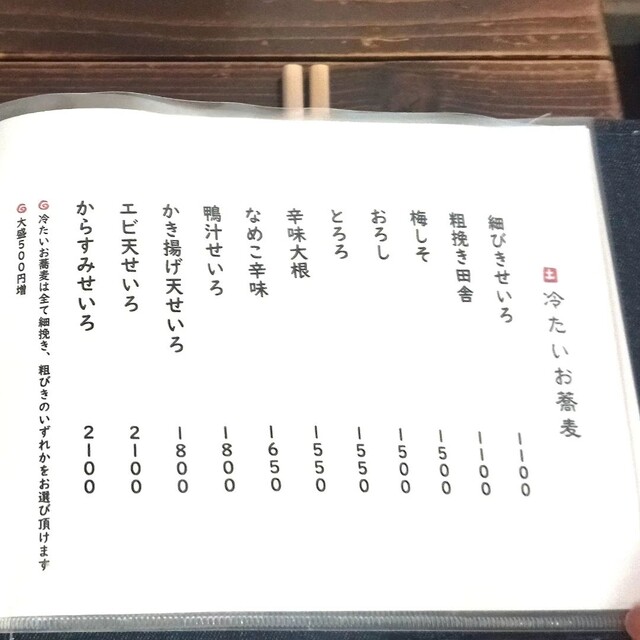 土 冷たいお蕎麦
細びきせいろ 1100
粗挽き田舎 1100
梅しそ 1500
おろし 1500
とろろ 1550
辛味大根 1550
なめこ辛味 1650
鴨汁せいろ 1800
かき揚げ天せいろ 1800
エビ天せいろ 2100
からすみせいろ 2100
冷たいお蕎麦は全て細挽き、粗びきのいずれかをお選び頂けます
大盛500円増